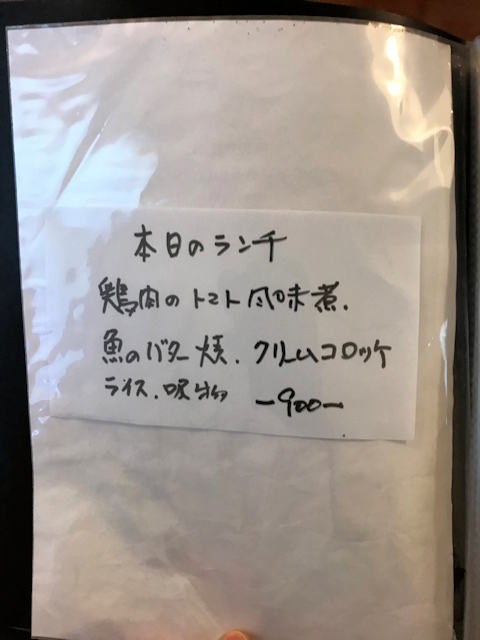 本日のランチ
鶏肉のトマト風味煮.
魚のバター焼.クリームコロッケ
ライス.吸物 -900-